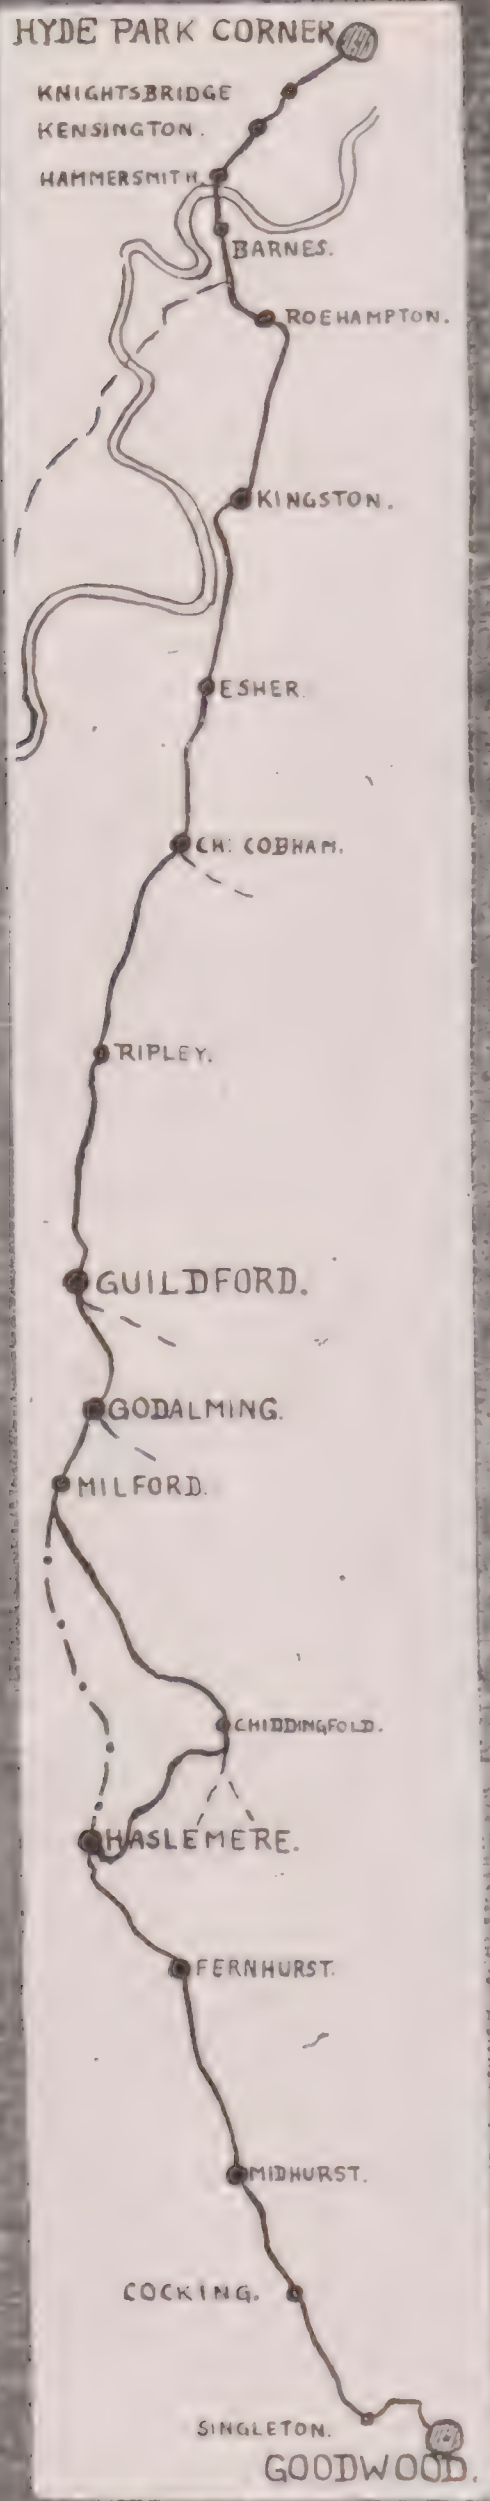 HYDE PARK CORNER
KNIGHTSBRIDGE
KENSINGTON.
HAMMERSMITH.
BARNES.
ROEHAMPTON.
KINGSTON.
ESHER.
CH: COBHAM.
RIPLEY.
GUILDFORD.
GODALMING.
MILFORD.
CHIDDINGFOLD.
HASLEMERE.
FERNHURST.
MIDHURST.
COCKING.
SINGLETON.
GOODWOOD.